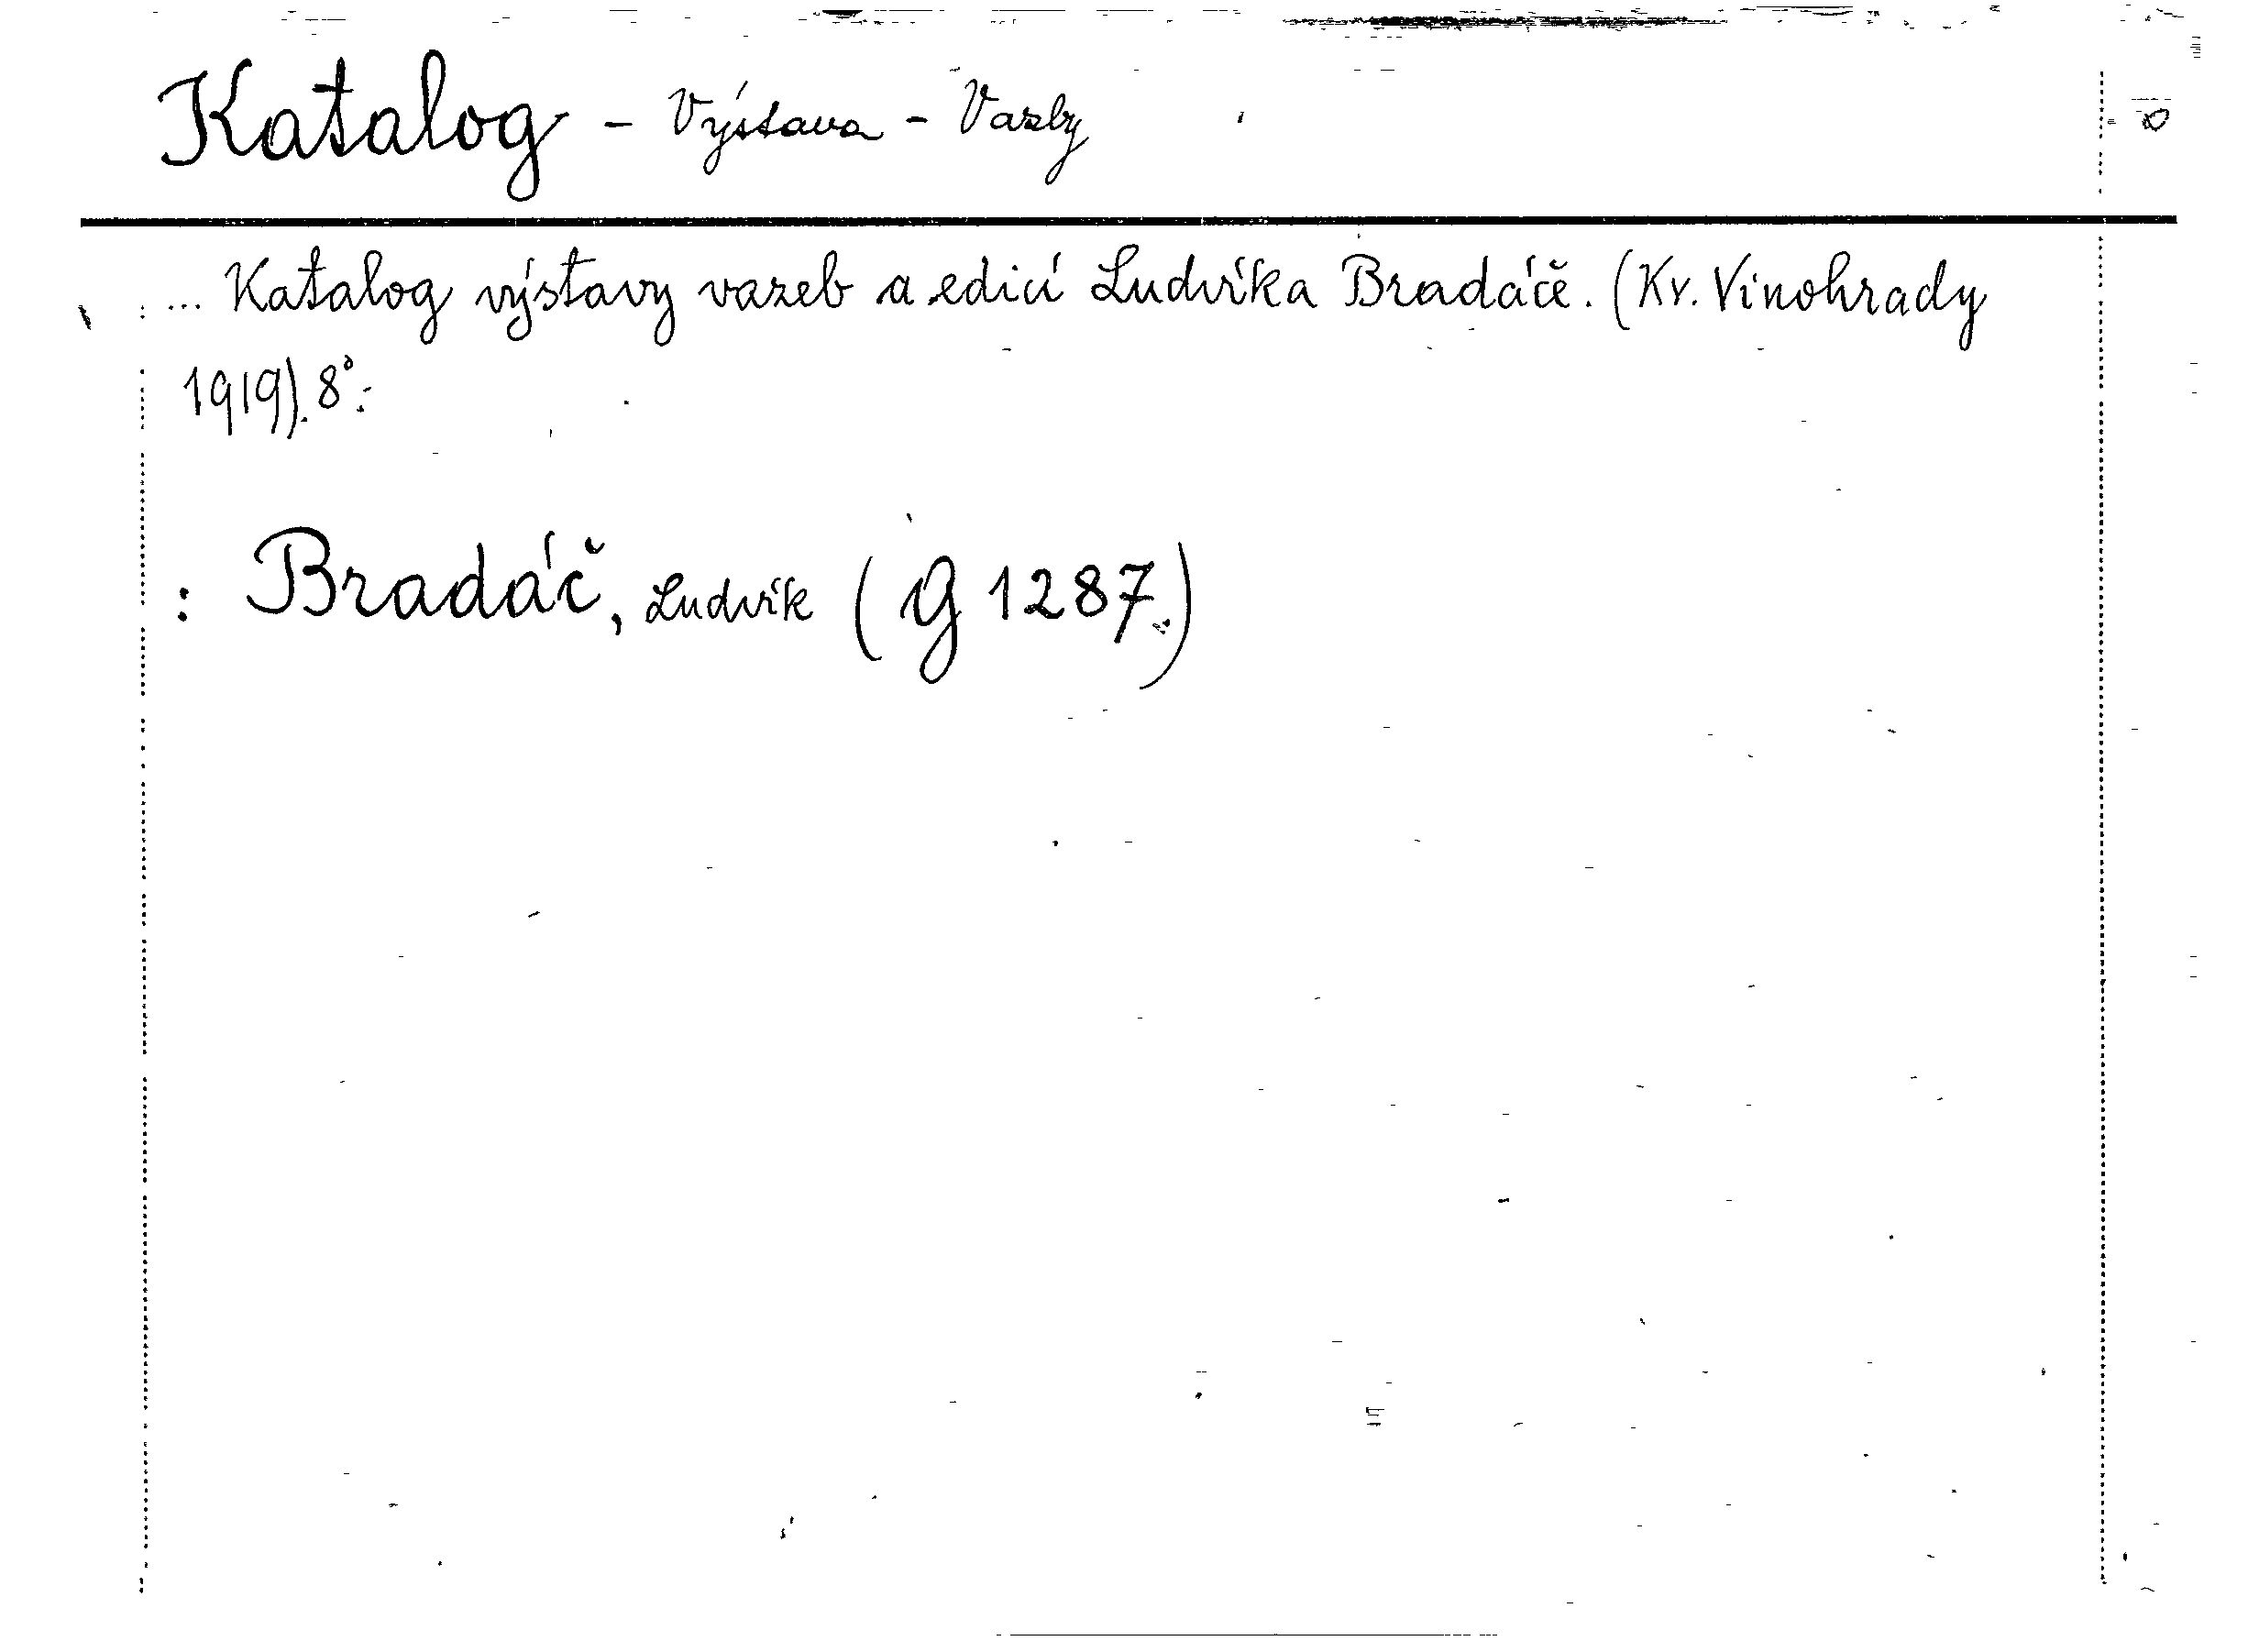 Katalog - Výstava - Vazby
... Katalog výstavy vazeb a edicí Ludvíka Bradáče. (Kr. Vinohrady
1919). 8°.
: Bradáč, Ludvík (G 1287.)